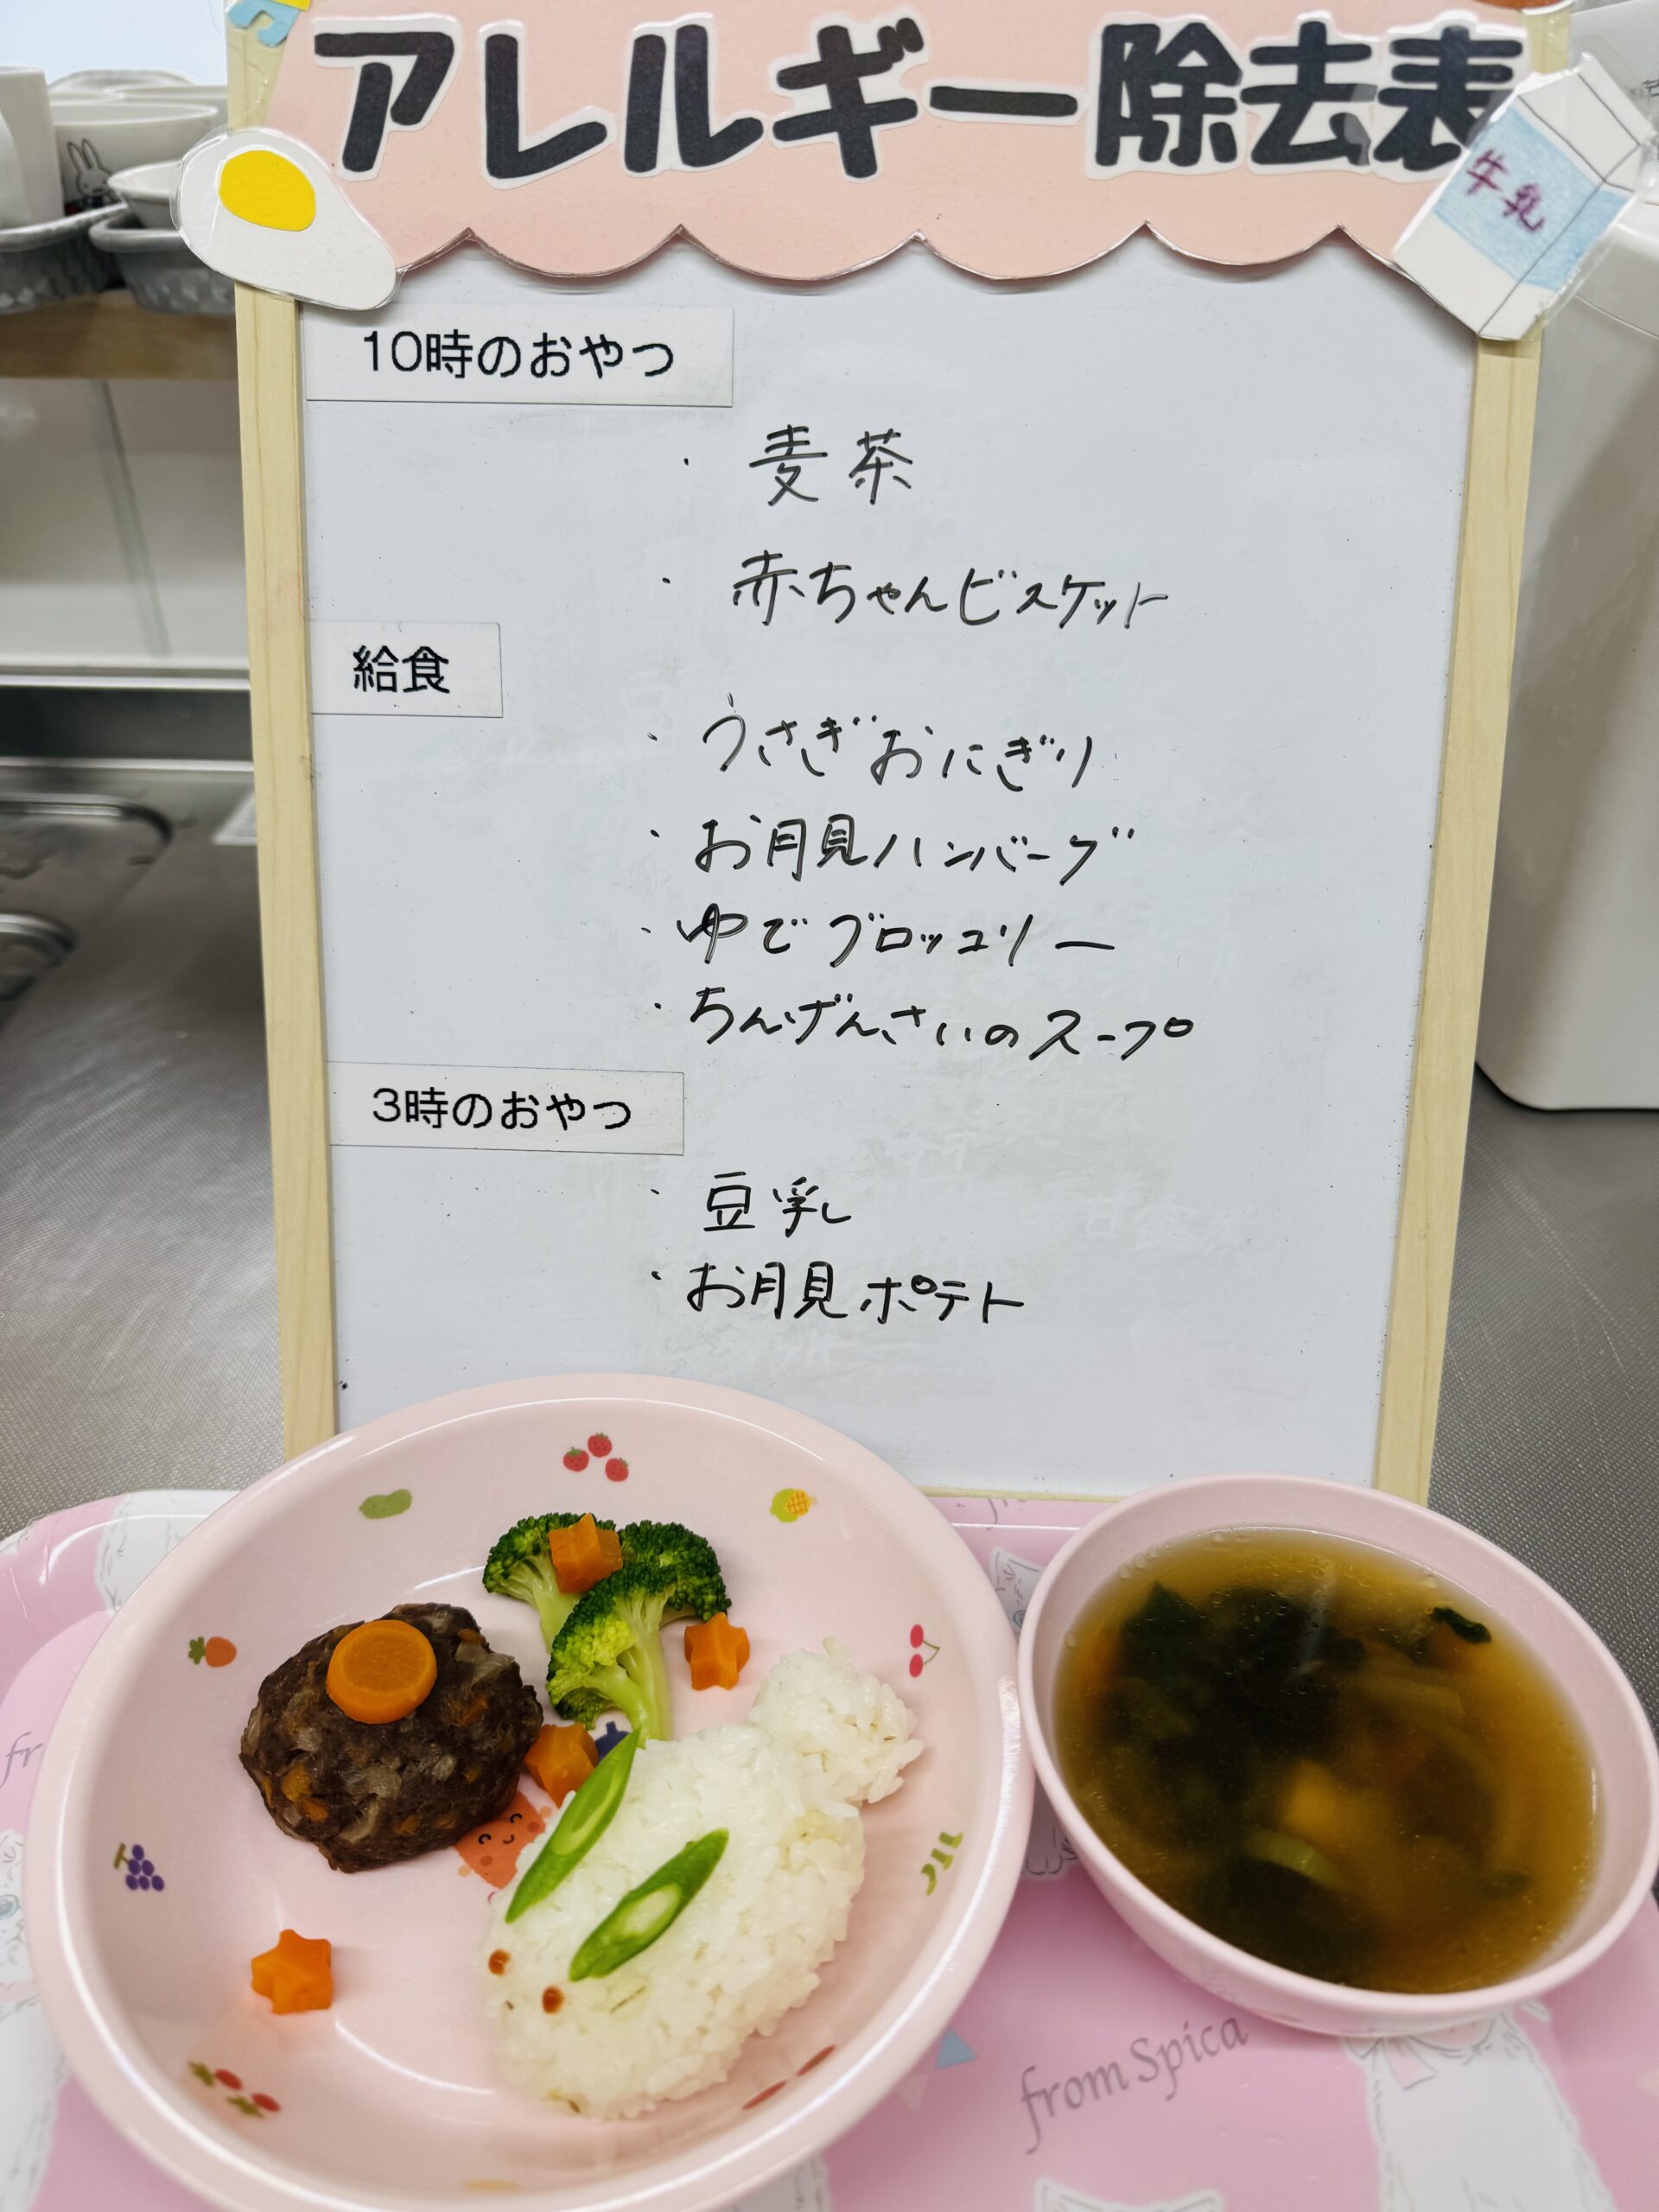 アレルギー除去表
牛乳
10時のおやつ
・麦茶
・赤ちゃんビスケット
給食
・うさぎおにぎり
・お月見ハンバーグ
・ゆでブロッコリー
・ちんげんさいのスープ
3時のおやつ
・豆乳
・お月見ポテト
from Spica